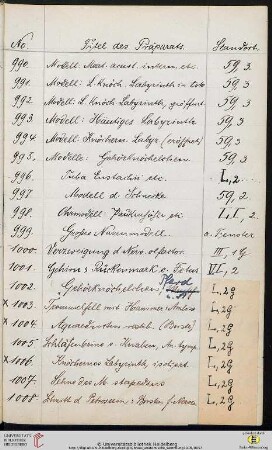 No. Titel des Präparats. Standort.
990. Modell: Meat. acust. intern. etc. 59, 3
991. Modell: l. Knöch. Labyrinth in toto 59, 3
992. Modell: l. Knöch. Labyrinth, geöffnet 59, 3
993. Modell: Häutiges Labyrinth 59, 3
994. Modell: Knöchern. Labyr. (eröffnet) 59, 3
995. Modelle: Gehörknöchelchen 59, 3
996. Tuba Eustachii etc. L, 2
997. Modell d. Schnecke 59, 2
998. Ohrmodell: Paukenhöhle etc L, I, 2
999. Großes Nierenmodell a. Fenster
1000. Verzweigung d. Nerv. olfactor. III, 1g
1001. Gehirn & Rückenmark e. Fetus VL, 2
1002. Gehörknöchelchen, Pferd L, 2g
× 1003. Trommelfell mit Hammer, Amboss L, 2g
× 1004. L, 2g
1005 Schläfenbein e. Knaben, M. tymp. L, 2g
× 1006. Knöchernes Labyrinth, isoliert L, 2g
1007. Sehne des M. stapedius L, 2g
1008. Schnitt d. Petrosum L, 2g
UNIVERSITÄTS-
BIBLIOTHEK
HEIDELBERG
© Universitätsbibliothek Heidelberg